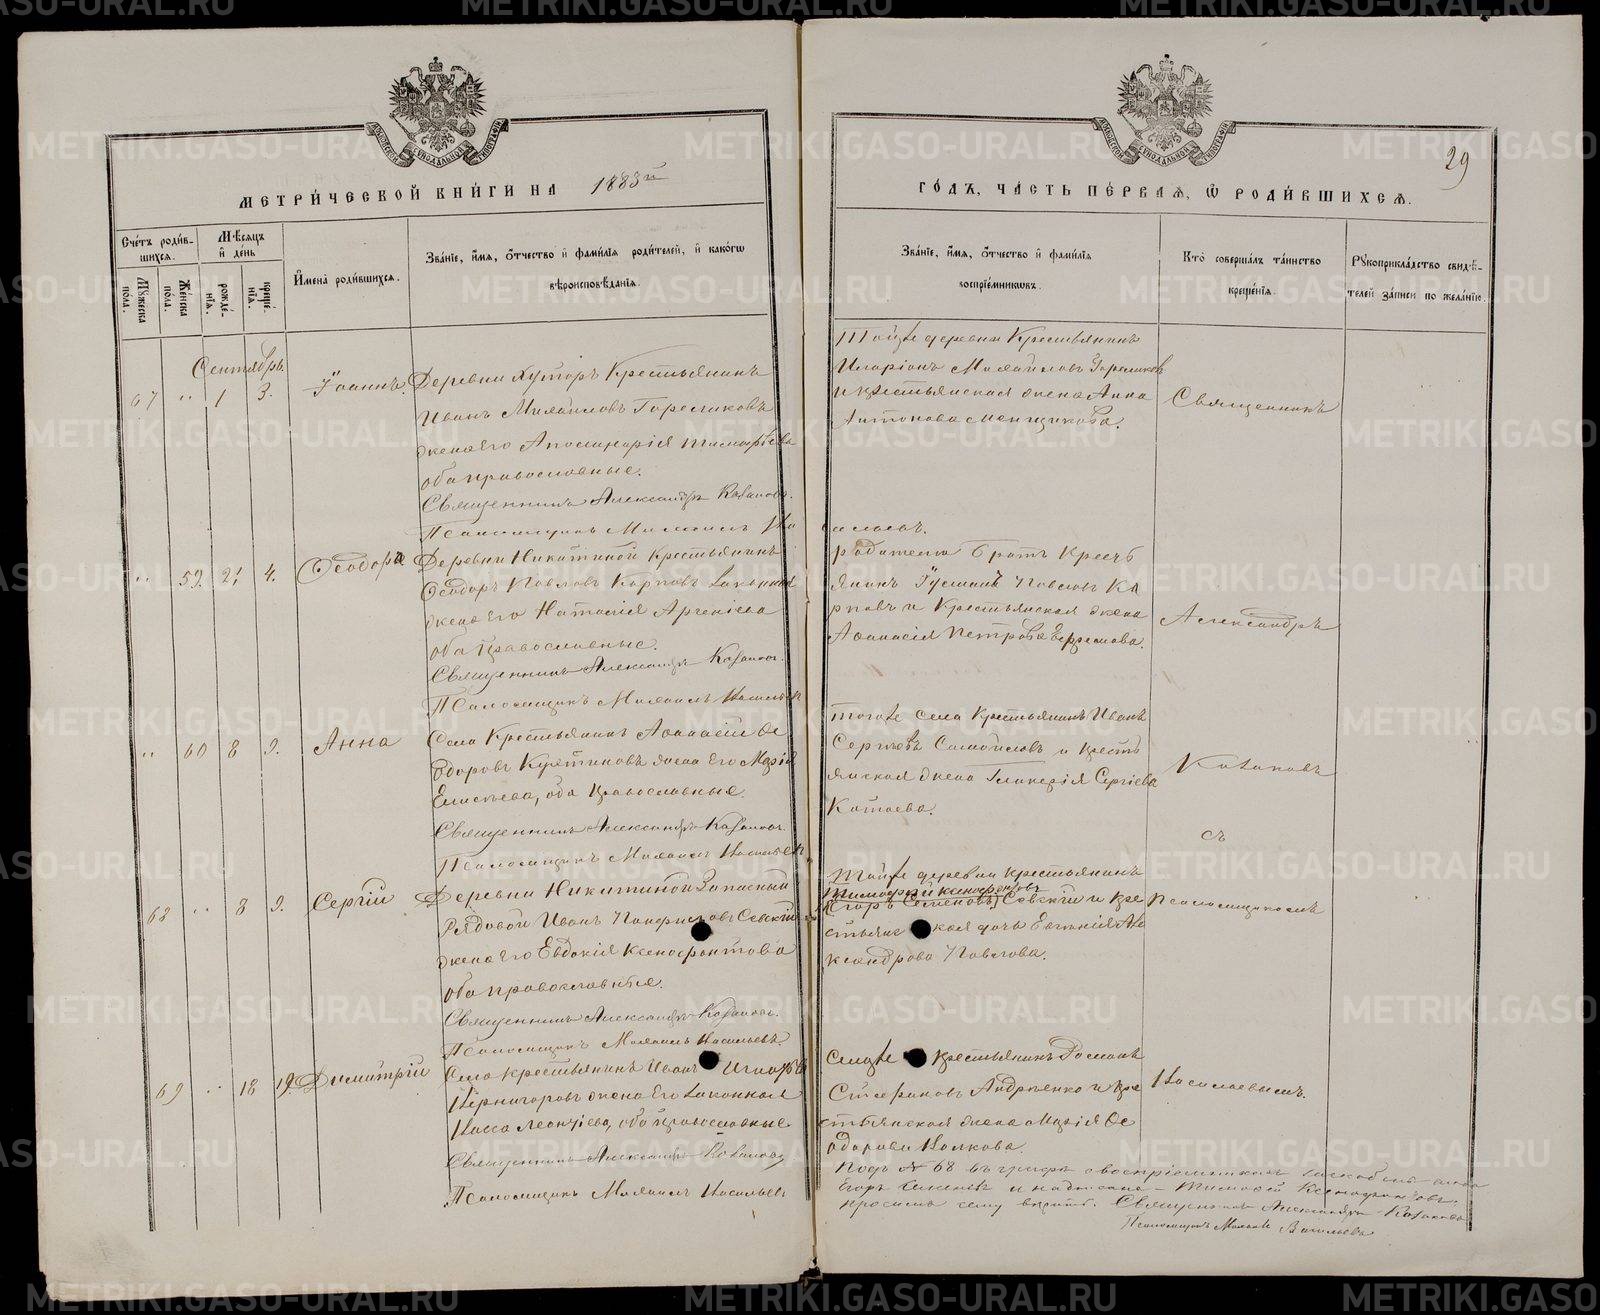 МЕТРИ́ЧЕСКОЙ КНИ́ГИ НА 1883й
ГО́ДЪ, ЧА́СТЬ ПЕ́РВАЯ, Ѿ РОДИ́ВШИХСЯ.
29
Сче́тъ роди́в-
шихся.
Му́жеска по́ла.
Же́нска по́ла.
Мѣ́сяцъ и де́нь
рожде́-
нїя.
креще́-
нїя.
Имена̀ роди́вшихся.
Зва́нїе, и́мя, о́тчество и фами́лїя роди́телей, и како́гѡ
вѣроисповѣ́данїя.
Зва́нїе, и́мя, о́тчество и фами́лїя
воспрїе́мниковъ.
Кто̀ соверша́лъ та́инство
креще́нїя.
Рукоприкла́дство свидѣ́-
телей за́писи по жела́нїю.
Сентябрь.
67 " 1 3. Іоаннъ. Деревни Хуторъ Крестьянинъ
Иванъ Михайловъ Гореликовъ
жена его Аполинарія Тимофѣева
оба православные.
Священникъ Александръ Казаковъ.
Псаломщикъ Михаилъ Васильевъ.
Тойже деревни Крестьянинъ
Иларіонъ Михайловъ Гореликовъ
и крестьянская жена Анна
Антонова Менщикова.
Священникъ
" 59. 2. 4. Ѳеодора Деревни Никитиной Крестьянинъ
Ѳеодоръ Павловъ Карповъ законная
жена его Наталія
оба православные.
Священникъ Александръ Казаковъ.
Псаломщикъ Михаилъ Васильевъ
родителя братъ Кресть
янинъ Іустинъ Павловъ Ка
рповъ и Крестьянская жена
Аѳанасія Петрова Ефремова.
Александръ
" 60 8 9. Анна Села Крестьянинъ Аѳанасій Ѳе
одоровъ жена его Марія
Елисѣева, оба православные.
Священникъ Александръ Казаковъ.
Псаломщикъ Михаилъ Васильевъ
тогоже села Крестьянинъ Иванъ
Сергѣевъ Самойловъ и кресть
янская жена Гликерія Сергіева
Катаева.
Казаковъ
съ
68 " 8 9. Сергій Деревни Никитиной Запасный
Рядовой Иванъ Сѣвскій
жена его Евдокія Ксенофонтова
оба православныя.
Священникъ Александръ Казаковъ.
Псаломщикъ Михаилъ Васильевъ.
Тойже деревни крестьянинъ
Тимофей Ксенофонтовъ
(Егоръ Семеновъ) Сѣвскій и кре
стьянская дочь Евгенія Але
ксандрова Павлова.
псаломщикомъ
69 " 18 19. Димитрій Села крестьянинъ Иванъ
жена его законная
Васса Леонтіева, оба православные
Священникъ Александръ Казаковъ
Псаломщикъ Михаилъ Васильевъ
Селаже крестьянинъ Романъ
Стефановъ Андрѣенко и кре
стьянская жена Марія Ѳе
одорова Волкова.
Васильевымъ.
Подъ № 68 въ графѣ о воспріемникахъ
Егоръ Семеновъ и надписано – Тимофей Ксенофонтовъ
просимъ сему вѣрить. Священникъ Александръ Казаковъ
Псаломщикъ Михаилъ Васильевъ
METRIKI.GASO-URAL.RU